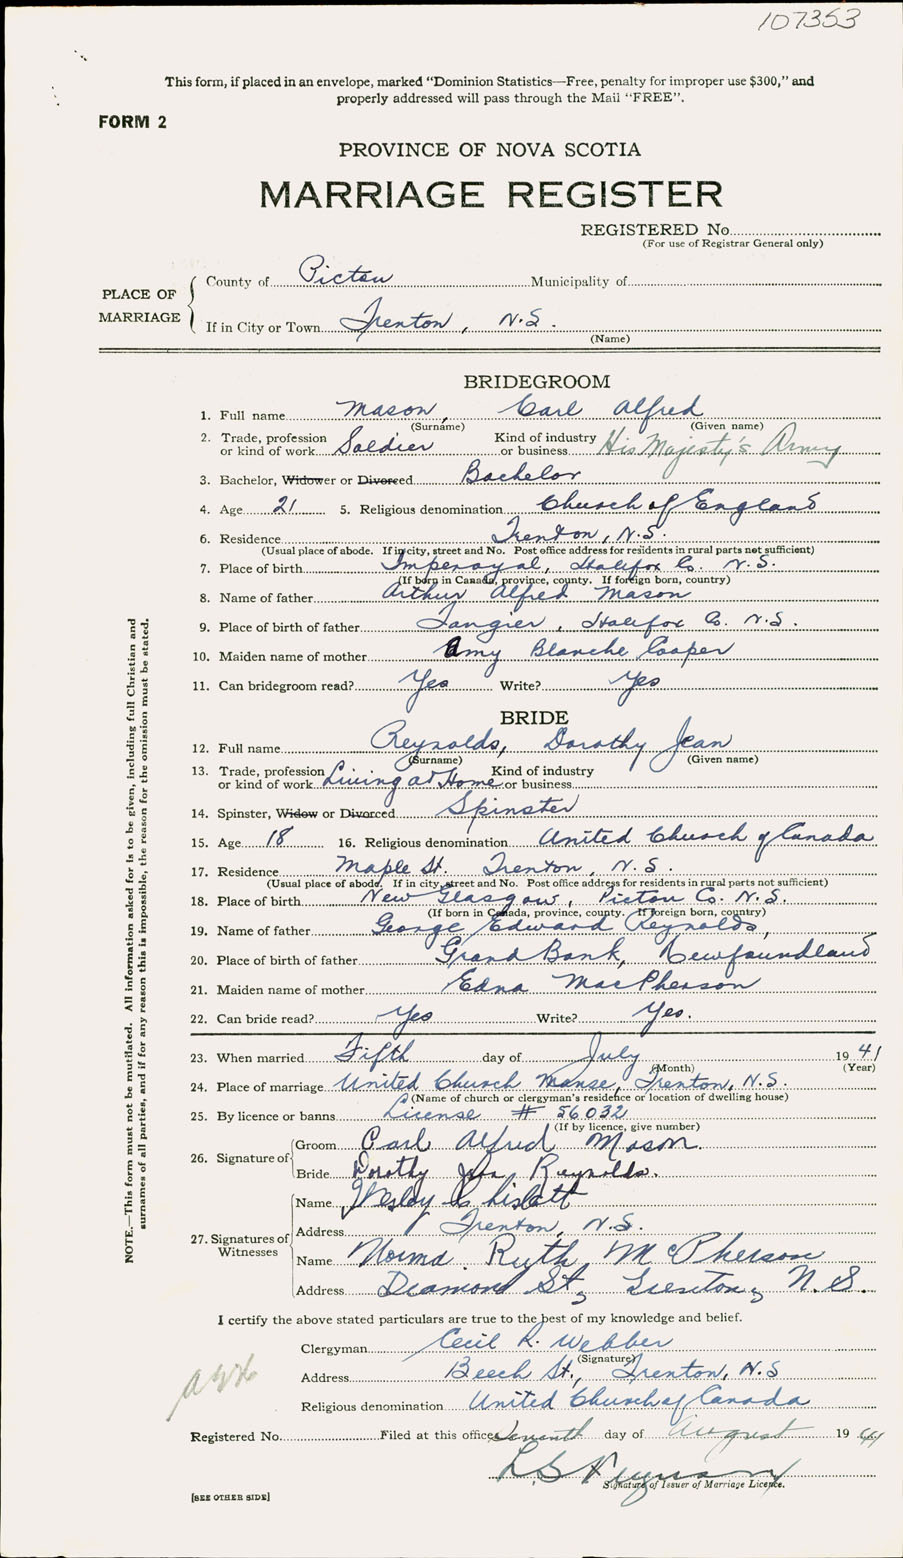 107353
This form, if placed in an envelope, marked “Dominion Statistics—Free, penalty for improper use $300,” and
properly addressed will pass through the Mail “FREE”.
FORM 2
PROVINCE OF NOVA SCOTIA
MARRIAGE REGISTER
REGISTERED No.
(For use of Registrar General only)
PLACE OF MARRIAGE
County of Pictou Municipality of
If in City or Town Trenton, N.S.
(Name)
BRIDEGROOM
1. Full name Mason, Carl Alfred
(Surname) (Given name)
2. Trade, profession or kind of work Soldier Kind of industry or business His Majesty's Army
3. Bachelor, Widower or Divorced Bachelor
4. Age 21 5. Religious denomination Church of England
6. Residence Trenton, N.S.
(Usual place of abode. If in city, street and No. Post office address for residents in rural parts not sufficient)
7. Place of birth Imperoyal, Halifax Co. N.S.
(If born in Canada, province, county. If foreign born, country)
8. Name of father Arthur Alfred Mason
9. Place of birth of father Tangier, Halifax Co. N.S.
10. Maiden name of mother Amy Blanche Cooper
11. Can bridegroom read? Yes Write? Yes
BRIDE
12. Full name Reynolds, Dorothy Jean
(Surname) (Given name)
13. Trade, profession or kind of work Living at Home Kind of industry or business
14. Spinster, Widow or Divorced Spinster
15. Age 18 16. Religious denomination United Church of Canada
17. Residence Maple St. Trenton, N.S.
(Usual place of abode. If in city, street and No. Post office address for residents in rural parts not sufficient)
18. Place of birth New Glasgow, Pictou Co. N.S.
(If born in Canada, province, county. If foreign born, country)
19. Name of father George Edward Reynolds,
20. Place of birth of father Grand Bank, Newfoundland
21. Maiden name of mother Edna MacPherson
22. Can bride read? Yes Write? Yes.
23. When married Fifth day of July 1941
(Month) (Year)
24. Place of marriage United Church Manse, Trenton, N.S.
(Name of church or clergyman's residence or location of dwelling house)
25. By licence or banns License # 56032
(If by licence, give number)
26. Signature of Groom Carl Alfred Mason.
Bride Dorothy Jean Reynolds.
27. Signatures of Witnesses
Name Wesley
Address Trenton, N.S.
Name Norma Ruth McPherson
Address Diamond St, Trenton, N.S.
I certify the above stated particulars are true to the best of my knowledge and belief.
Clergyman Cecil R. Webber
(Signature)
Address Beech St., Trenton, N.S
Religious denomination United Church of Canada
Registered No. Filed at this office Seventh day of August 1941
Signature of Issuer of Marriage Licence.
[SEE OTHER SIDE]
NOTE.—This form must not be mutilated. All information asked for is to be given, including full Christian and
surnames of all parties, and if for any reason this is impossible, the reason for the omission must be stated.